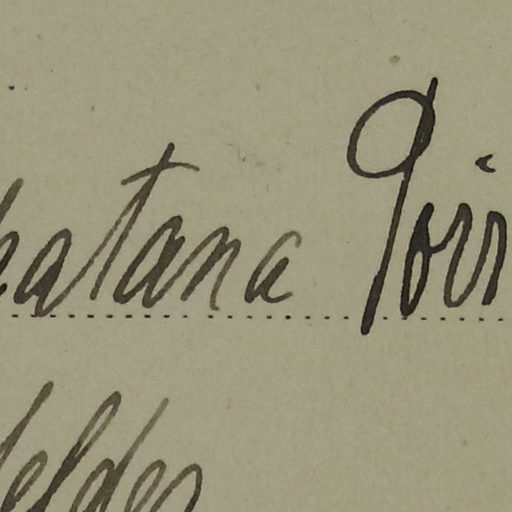 hatana Poir
elder